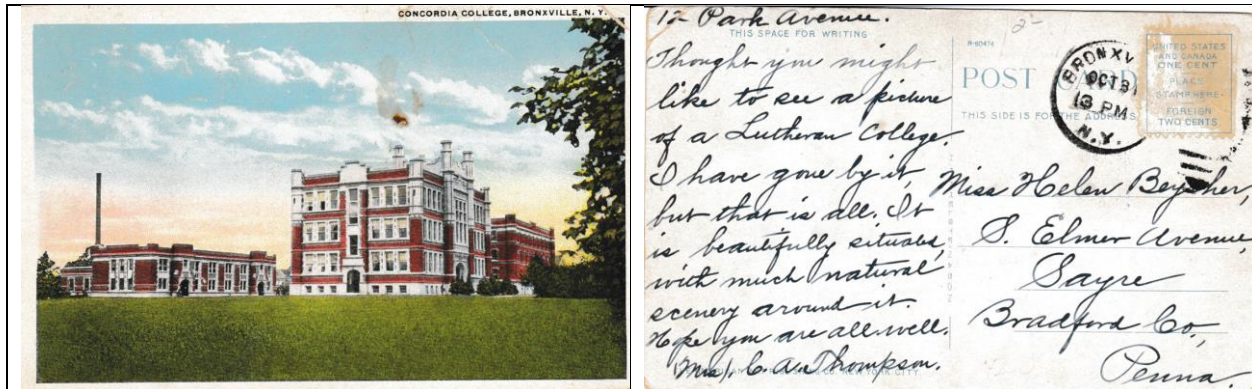 CONCORDIA COLLEGE, BRONXVILLE, N. Y.
12 Park Avenue.
THIS SPACE FOR WRITING
Thought you might
like to see a picture
of a Lutheran College.
I have gone by it,
but that is all. It
is beautifully situated,
with much natural
scenery around it.
Hope you are all well.
(Mrs). C. A. Thompson.
NEW YORK CITY.
R-60474
POST CARD
THIS SIDE IS FOR THE ADDRESS
BRONXV
OCT 31
13 PM
N.Y.
UNITED STATES
AND CANADA
ONE CENT
PLACE
STAMP HERE
FOREIGN
TWO CENTS
Miss Helen
S. Elmer Avenue,
Sayre
Bradford Co.,
Penna.